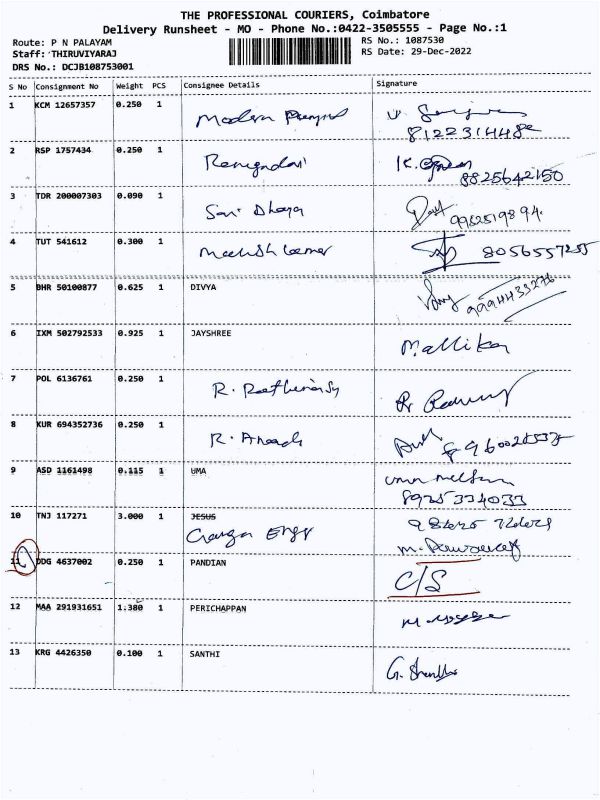 THE PROFESSIONAL COURIERS, Coimbatore
Delivery Runsheet - MO - Phone No.:0422-3505555 - Page No.:1
Route: P N PALAYAM
Staff: THIRUVIYARAJ
DRS No.: DCJB108753001
RS No.: 1087530
RS Date: 29-Dec-2022
S No Consignment No Weight PCS Consignee Details Signature
1 KCM 12657357 0.250 1 Modern
2 RSP 1757434 0.250 1
8825642150
3 TDR 200007303 0.090 1 Sai Dhaya
9982519894
4 TUT 541612 0.300 1 8056557255
5 BHR 50100877 0.625 1 DIVYA
9994433276
6 IXM 502792533 0.925 1 JAYSHREE Mallika
7 POL 6136761 0.250 1 R.
8 KUR 694352736 0.250 1 R.
9 ASD 1161498 0.115 1 UMA
8925334033
10 TNJ 117271 3.000 1 JESUS
Ganga Engg
11 DDG 4637002 0.250 1 PANDIAN C/S
12 MAA 291931651 1.380 1 PERICHAPPAN
13 KRG 4426350 0.100 1 SANTHI G.